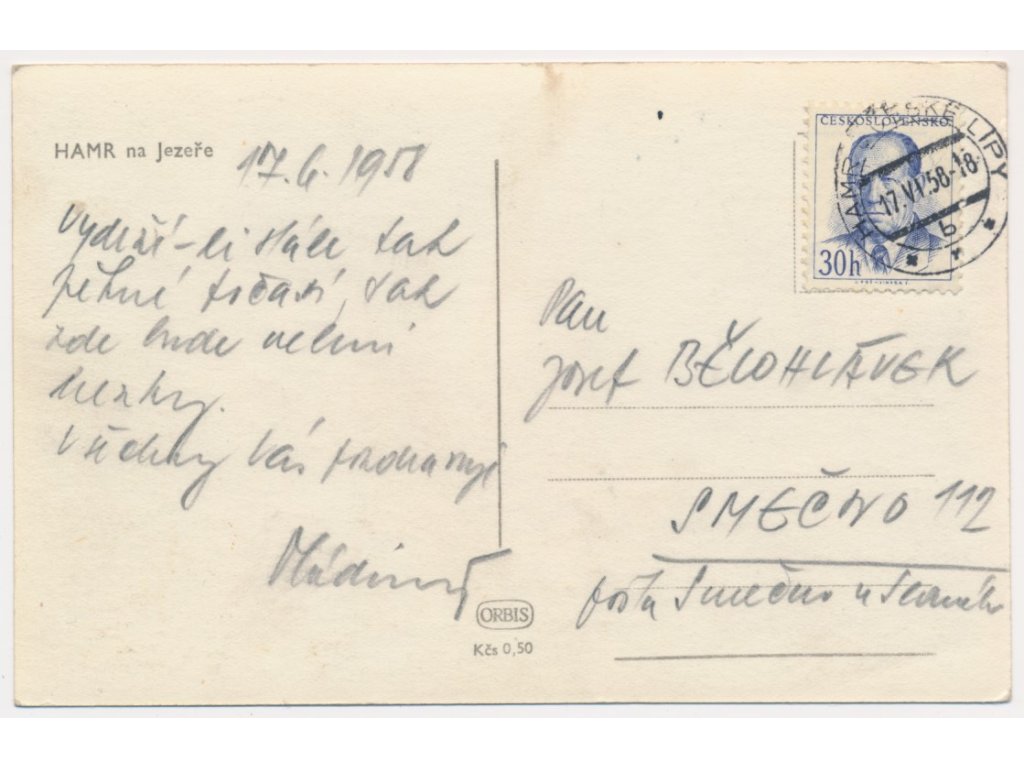 HAMR na Jezeře
17. 6. 1958
Vydrží-li stále tak
pěkné počasí, tak
zde bude velmi
hezky.
Všechny Vás pozdravuje
ČESKOSLOVENSKO
30h
HAMR U ČESKÉ LÍPY
17.VI.58-18
b
Pan
Josef BĚLOHLÁVEK
SMEČNO 112
pošta Smečno u Slaného
ORBIS
Kčs 0,50